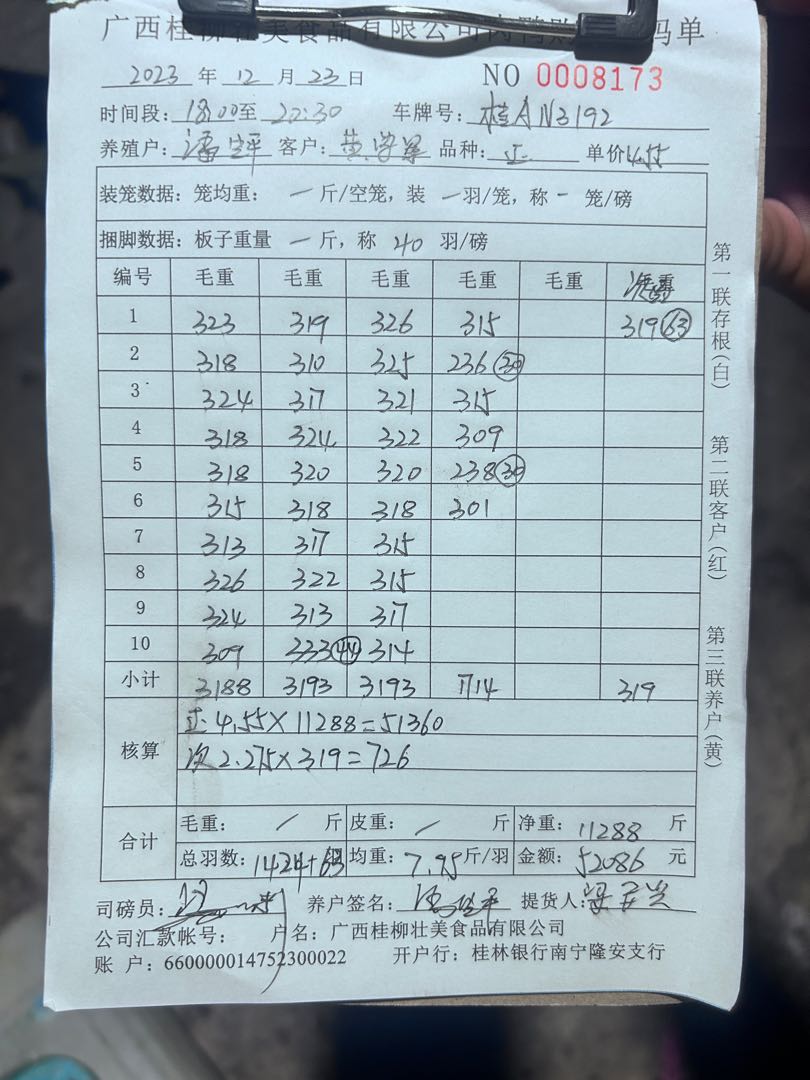 广西桂柳壮美食品有限公司肉鸭 码单
2023 年 12 月 23 日 NO 0008173
时间段: 18:00至 22:30 车牌号: 桂AN3192
养殖户: 客户: 品种: 正 单价4.55
装笼数据: 笼均重: 一 斤/空笼, 装 一 羽/笼, 称 一 笼/磅
捆脚数据: 板子重量 一 斤, 称 40 羽/磅
编号 毛重 毛重 毛重 毛重 毛重
1 323 319 326 315 319 63
2 318 310 325 236 30
3 324 317 321 315
4 318 324 322 309
5 318 320 320 238 30
6 315 318 318 301
7 313 317 315
8 326 322 315
9 324 313 317
10 309 333 44 314
小计 3188 3193 3193 1714 319
核算 正 4.55×11288=51360
次 2.275×319=726
合计 毛重: / 斤 皮重: / 斤 净重: 11288 斤
总羽数: 1424+63 羽 均重: 7.95斤/羽 金额: 52086 元
司磅员: 养户签名: 提货人:
公司汇款帐号: 户名: 广西桂柳壮美食品有限公司
账 户: 660000014752300022 开户行: 桂林银行南宁隆安支行
第一联存根(白)
第二联客户(红)
第三联养户(黄)